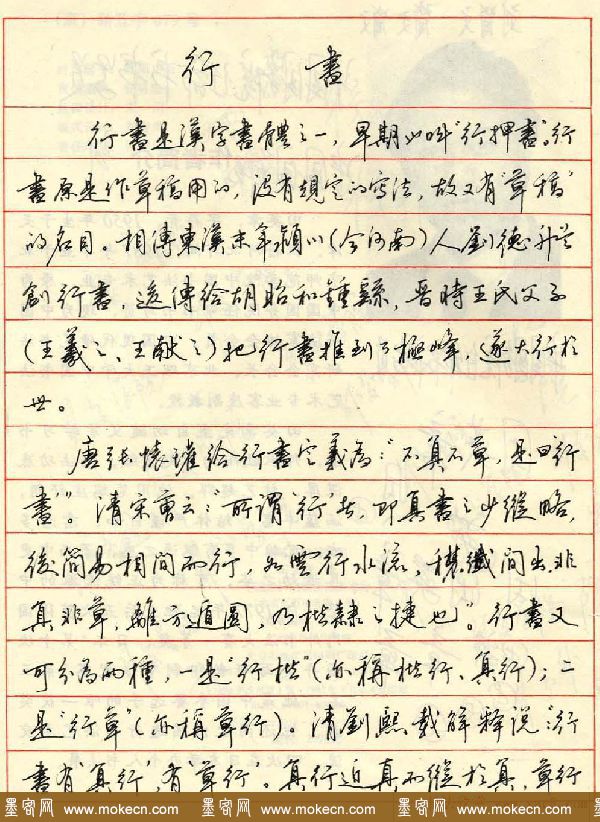 行書
行書是漢字書體之一，早期叫“行押書”。行
書原是作草稿用的，没有規定的寫法，故又有“草稿”
的名目。相傳東漢末年潁川（今河南）人劉德升首
創行書，後傳給胡昭和鍾繇，晋時王氏父子
（王羲之、王献之）把行書推到了極峰，遂大行於
世。
唐張懷瓘給行書定義為：“不真不草，是曰行
書”。清宋曹云：“所謂‘行’者，即真書之少縱略，
後簡易相間而行，如雲行水流，穠纖間出，非
真非草，離方遁圓，乃楷隸之捷也”。行書又
可分為兩種，一是“行楷”（亦稱楷行、真行）；二
是“行草”（亦稱草行）。清劉熙載解釋説：“行
書有‘真行’，有‘草行’”。真行近真而縱於真，草行
墨客网 www.mokecn.com 墨客网 www.mokecn.com 墨客网 www.mokecn.com